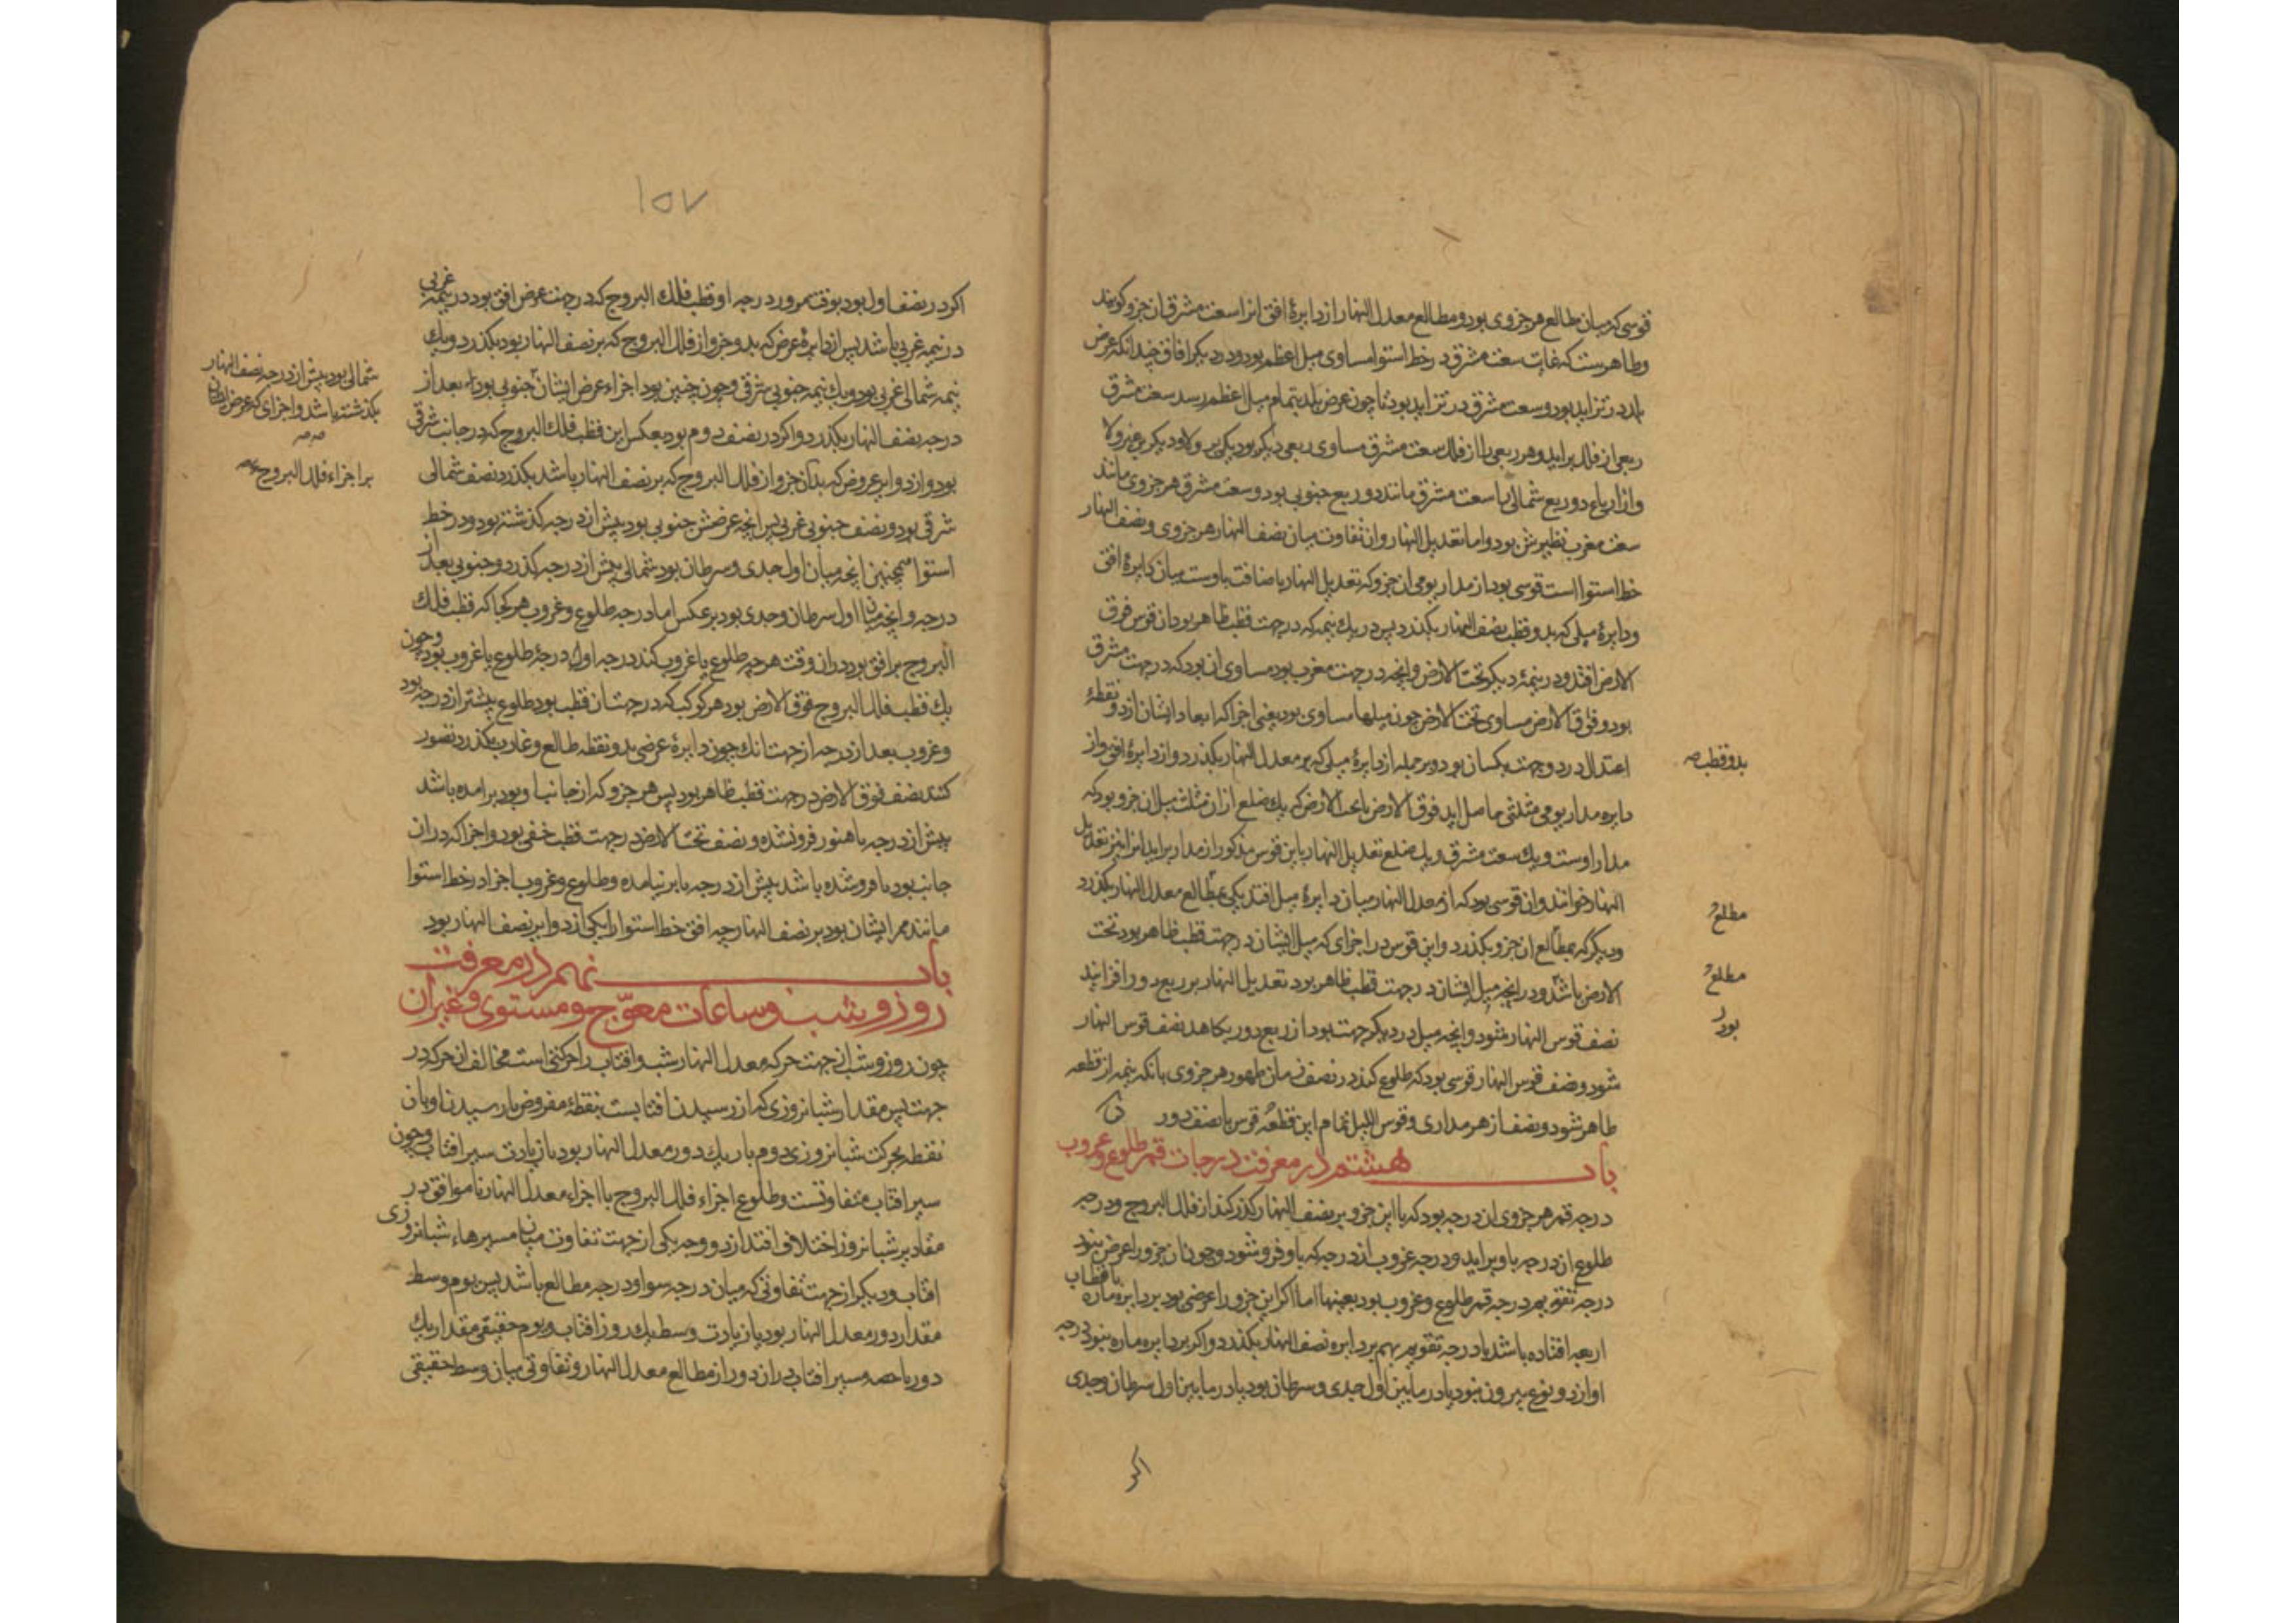 قوسی که میان مطالع هر جزوی بود و مطالع معدل النهار از دایرهٔ افق انرا سعت مشرق ان جزو کویند
وظاهرست که غایت سعت مشرق در خط استوا مساوی میل اعظم بود و در دیکر افاق چندانکه عرض
بلد در تزاید بود وسعت مشرق در تزاید بود تا چون عرض بلد بتمام میل اعظم رسد سعت مشرق
ربعی از فلک براید وهر ربعی را از فلک سعت مشرق مساوی ربعی دیکر بود یکی بر ولا ودیکر بر غیر ولا
وازارباع دو ربع شمالی را سعت مشرق مانند دو ربع جنوبی بود وسعت مشرق هر جزوی مانند
سعت مغرب نظیرش بود واما تعدیل النهار وان تفاوت میان نصف النهار هر جزوی ونصف النهار
خط استوا است قوسی بود از مدار یومی ان جزو که تعدیل النهار باضافت باوست میان دایرهٔ افق
ودایرهٔ میلی که بدو قطب نصف النهار بکذرد پس در یک نیمه که در جهت قطب ظاهر بود ان قوس فوق
الارض افتد ودر نیمهٔ دیکر تحت الارض وانچه در جهت مغرب بود مساوی ان بود که در جهت مشرق
بود وفوق الارض مساوی تحت الارض چون میلها مساوی بود یعنی اجزا که ابعاد ایشان از دو نقطهٔ
اعتدال در دو جهت یکسان بود وبر جمله از دایرهٔ میلی که بر معدل النهار بکذرد واز دایرهٔ افق واز
دایره مدار یومی مثلثی حاصل اید فوق الارض یا تحت الارض که یک ضلع از ان مثلث میل ان جزو بود که
مدار اوست ویک سعت مشرق ویک ضلع تعدیل النهار یا این قوس مذکور از مدار براید انرا نیز تعدیل
النهار خوانند وان قوسی بود که از معدل النهار میان دایرهٔ میل افتد یکی بمطالع معدل النهار بکذرد
ودیکر که بمطالع ان جزو بکذرد واین قوس در اجزای که میل ایشان در جهت قطب ظاهر بود تحت
الارض باشد ودر انچه میل ایشان در جهت قطب ظاهر بود تعدیل النهار بر ربع دور افزایند
نصف قوس النهار شود وانچه میل در دیکر جهت بود از ربع دور بکاهد نصف قوس النهار
شود ونصف قوس النهار قوسی بود که طلوع کند در نصف زمان ظهور هر جزوی بانکه نیمه از قطعه
ظاهر شود ونصف از هر مداری وقوس اللیل تمام این قطعه قوس با نصف دور
باب هشتم در معرفت درجات ممر طلوع وغروب
درجه ممر هر جزوی ان درجه بود که با این جزو بر نصف النهار کذر کند از فلک البروج ودرجه
طلوع ان درجه باو براید ودرجه غروب از درجه که باو فرو شود وچون ان جزو را عرض نبود
درجه تقویم درجه ممر طلوع وغروب بود بعینها اما اکر این جزو را عرضی بود بر دایره ماره باقطاب
اربعه افتاده باشد با درجه تقویم بهم بر دایره نصف النهار بکذرد واکر بر دایره ماره نبود درجه
او از دو نوع بیرون نبود یا در مابین اول جدی وسرطان بود یا در مابین اول سرطان وجدی
بدو قطب صه
مطلع
مطلع
بود
اکر
١٥٧
اکر در نصف اول بود بوقت مرور درجه او قطب فلک البروج که در جهت عرض افق بود در نیمه غربی
در نیمه غربی باشد پس از دایرهٔ عرض که بدو جزو از فلک البروج که بر نصف النهار بود بکذرد ویک
نیمه شمالی غربی بود ویک نیمه جنوبی شرقی وچون چنین بود اجزاء عرض ایشان جنوبی بود بعد از
درجه نصف النهار بکذرد واکر در نصف دوم بود بعکس این قطب فلک البروج که در جانب شرقی
بود واز دوایر عروض که بدان جزو از فلک البروج که بر نصف النهار باشد بکذرد نصف شمالی
شرقی بود ونصف جنوبی غربی پس انچه عرضش جنوبی بود پیش از درجه کذشته بود ودر خط
استوا همچنین انچه میان اول جدی وسرطان بود شمالی پیش از درجه کذرد وجنوبی بعد از
درجه وانچه میان اول سرطان وجدی بود بر عکس اما درجه طلوع وغروب هر کجا که قطب فلک
البروج بر افق بود در ان وقت هرچه طلوع یا غروب کند درجه او درجهٔ طلوع یا غروب بود وچون
یک قطب فلک البروج فوق الارض بود هر کوکب که در جهت ان قطب بود طلوع پیشتر از درجه بود
وغروب بعد از درجه از جهت انک چون دایرهٔ عرضی بدو نقطه طالع وغارب بکذرد تصور
کنند نصف فوق الارض در جهت قطب ظاهر بود پس هر جزو که از جانب او بود برامده باشد
پیش از درجه یا هنوز فرونشده ونصف تحت الارض در جهت قطب خفی بود واجزا که در ان
جانب بود یا فروشده باشد پیش از درجه یا برنیامده وطلوع وغروب اجزا در خط استوا
مانند ممر ایشان بود بر نصف النهار چه افق خط استوا را یکی از دوایر نصف النهار بود
باب نهم در معرفت
روز وشب وساعات معوّج ومستوی وغیران
چون روز وشب از جهت حرکه معدل النهار شب وافتاب را حرکتی است مخالف ان حرکه در
جهت پس مقدار شبانروزی که از رسیدن افتابست بنقطهٔ مفروض تا رسیدن او بان
نقطه بحرکت شبانروزی دوم بار یک دور معدل النهار بود با زیادت سیر افتاب وچون
سیر افتاب متفاوتست وطلوع اجزاء فلک البروج با اجزاء معدل النهار ناموافق در
مقادیر شبانروز اختلافی افتد از دو وجه یکی از جهت تفاوت میان مسیرهاء شبانروزی
افتاب ودیکر از جهت تفاوتی که میان درجه سوا ودرجه مطالع باشد پس یوم وسط
مقدار دور معدل النهار بود با زیادت وسط یک روز افتاب ویوم حقیقی مقدار یک
دور با حصه سیر افتاب در ان دور از مطالع معدل النهار وتفاوتی میان وسط حقیقی
شمالی بود پیش از درجه نصف النهار
بکذشته باشد واجزای که عرض ایشان
بر اجزاء فلک البروج